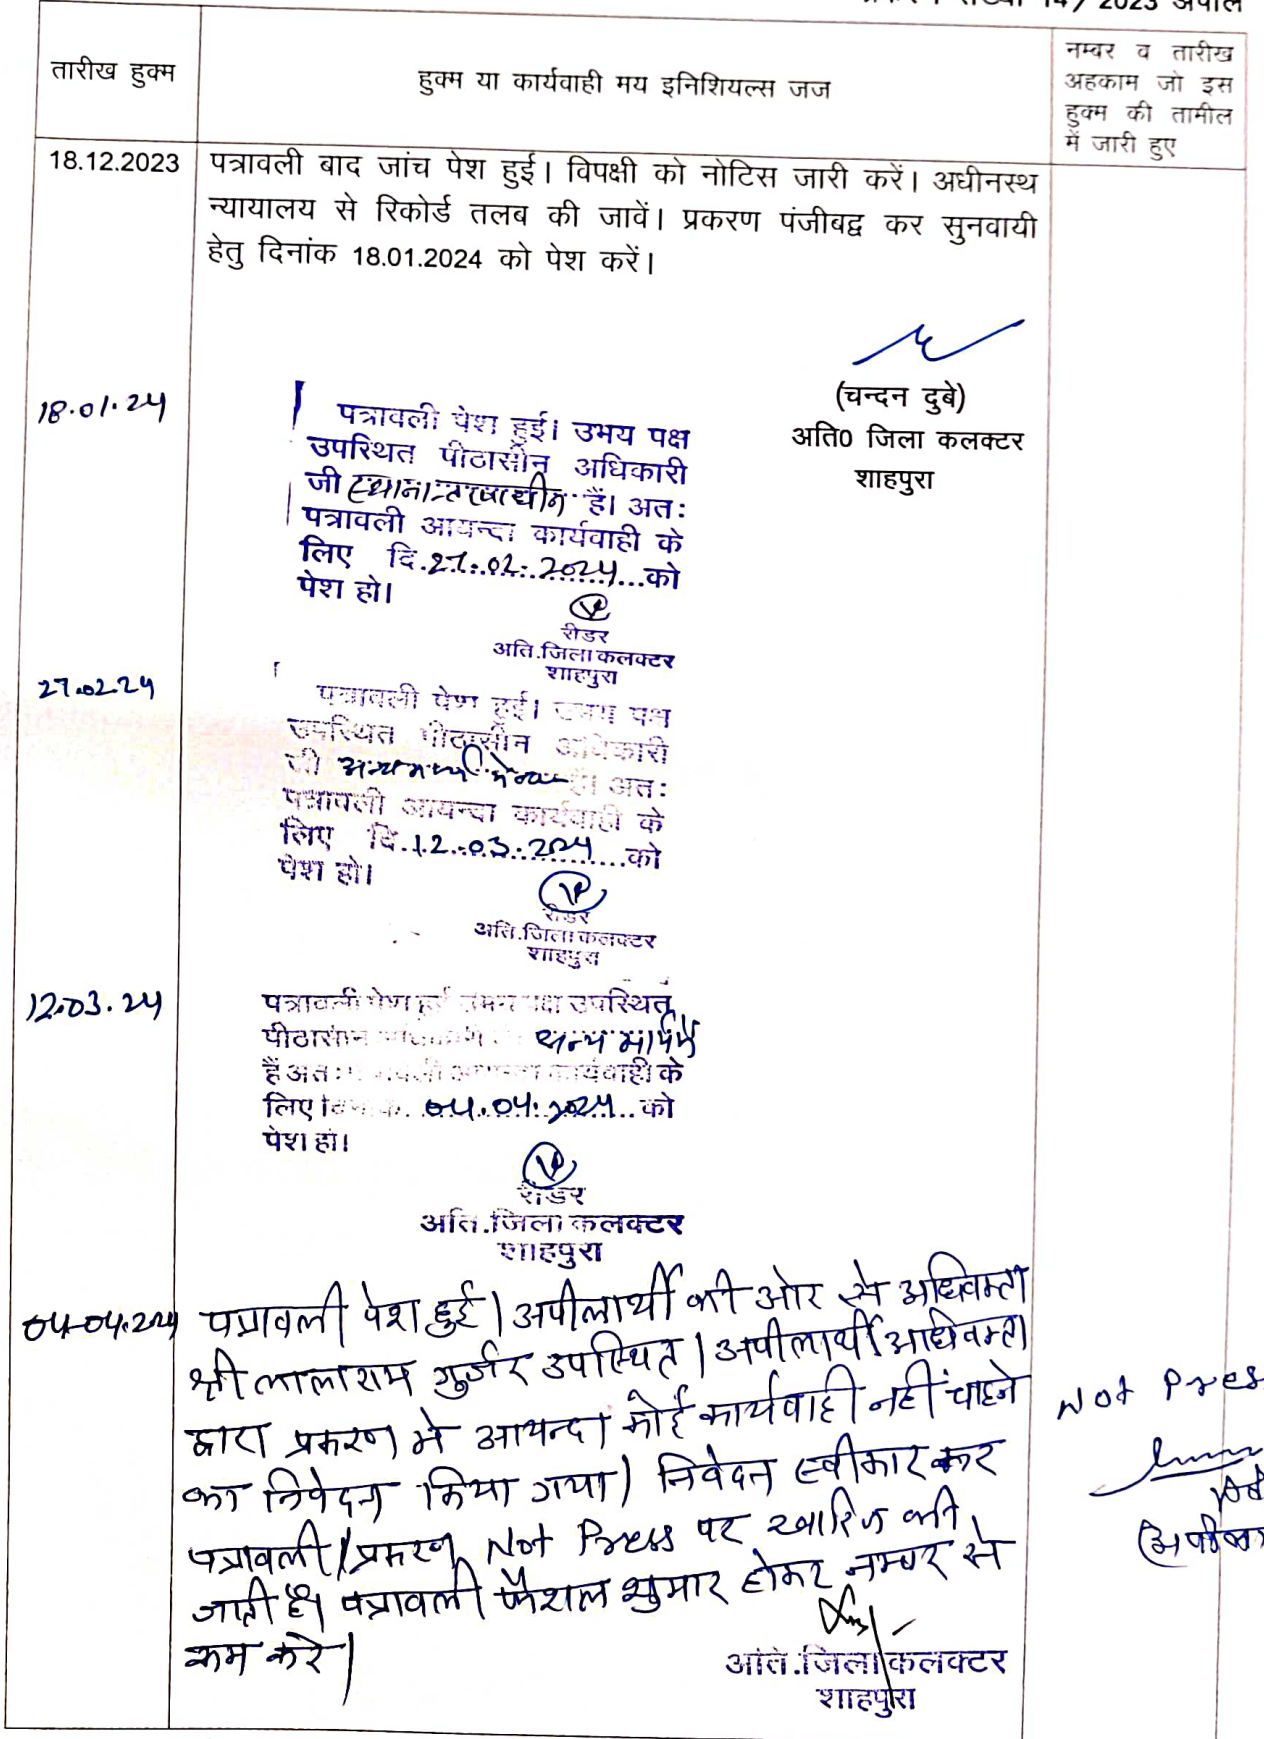 प्रकरण संख्या 14/2023 अपील
तारीख हुक्म
हुक्म या कार्यवाही मय इनिशियल्स जज
नम्बर व तारीख
अहकाम जो इस
हुक्म की तामील
में जारी हुए
18.12.2023
पत्रावली बाद जांच पेश हुई। विपक्षी को नोटिस जारी करें। अधीनस्थ
न्यायालय से रिकोर्ड तलब की जावें। प्रकरण पंजीबद्व कर सुनवायी
हेतु दिनांक 18.01.2024 को पेश करें।
(चन्दन दुबे)
अति0 जिला कलक्टर
शाहपुरा
18.01.24
पत्रावली पेश हुई। उभय पक्ष
उपस्थित पीठासीन अधिकारी
जी स्थानान्तराधीन हैं। अतः
पत्रावली आयन्दा कार्यवाही के
लिए दि.27.02.2024...को
पेश हो।
रीडर
अति.जिला कलक्टर
शाहपुरा
27.02.24
पत्रावली पेश हुई। उभय पक्ष
उपस्थित पीठासीन अधिकारी
जी हैं। अतः
पत्रावली आयन्दा कार्यवाही के
लिए दि.12.03.2024...को
पेश हो।
रीडर
अति.जिला कलक्टर
शाहपुरा
12.03.24
पत्रावली पेश हुई उभय पक्ष उपस्थित
पीठासीन अन्य कार्य में
हैं अतः पत्रावली आयन्दा कार्यवाही के
लिए दिनांक 04.04.2024...को
पेश हो।
रीडर
अति.जिला कलक्टर
शाहपुरा
04.04.2024
पत्रावली पेश हुई। अपीलार्थी की ओर से अधिवक्ता
श्री लालाराम गुर्जर उपस्थित। अपीलार्थी अधिवक्ता
द्वारा प्रकरण में आयन्दा कोई कार्यवाही नहीं चाहने
का निवेदन किया गया। निवेदन स्वीकार कर
पत्रावली/प्रकरण Not Press पर खारिज की
जाती है। पत्रावली फैशल शुमार होकर नम्बर से
कम करे।
Not Pres
अति.जिला कलक्टर
शाहपुरा